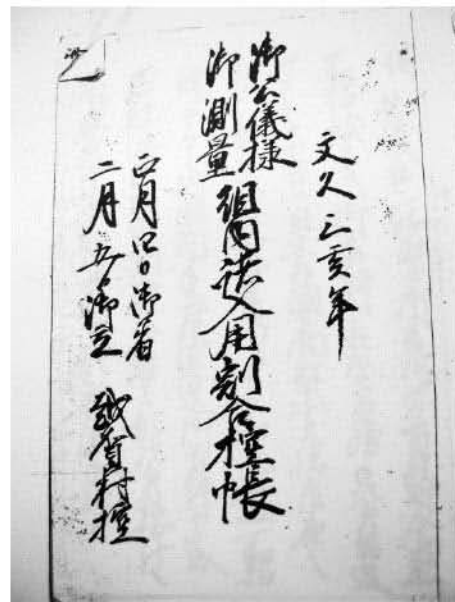 文久三亥年
御公儀様
御測量
組内諸入用割合控帳
正月四日御着
二月五日御立
越賀村控